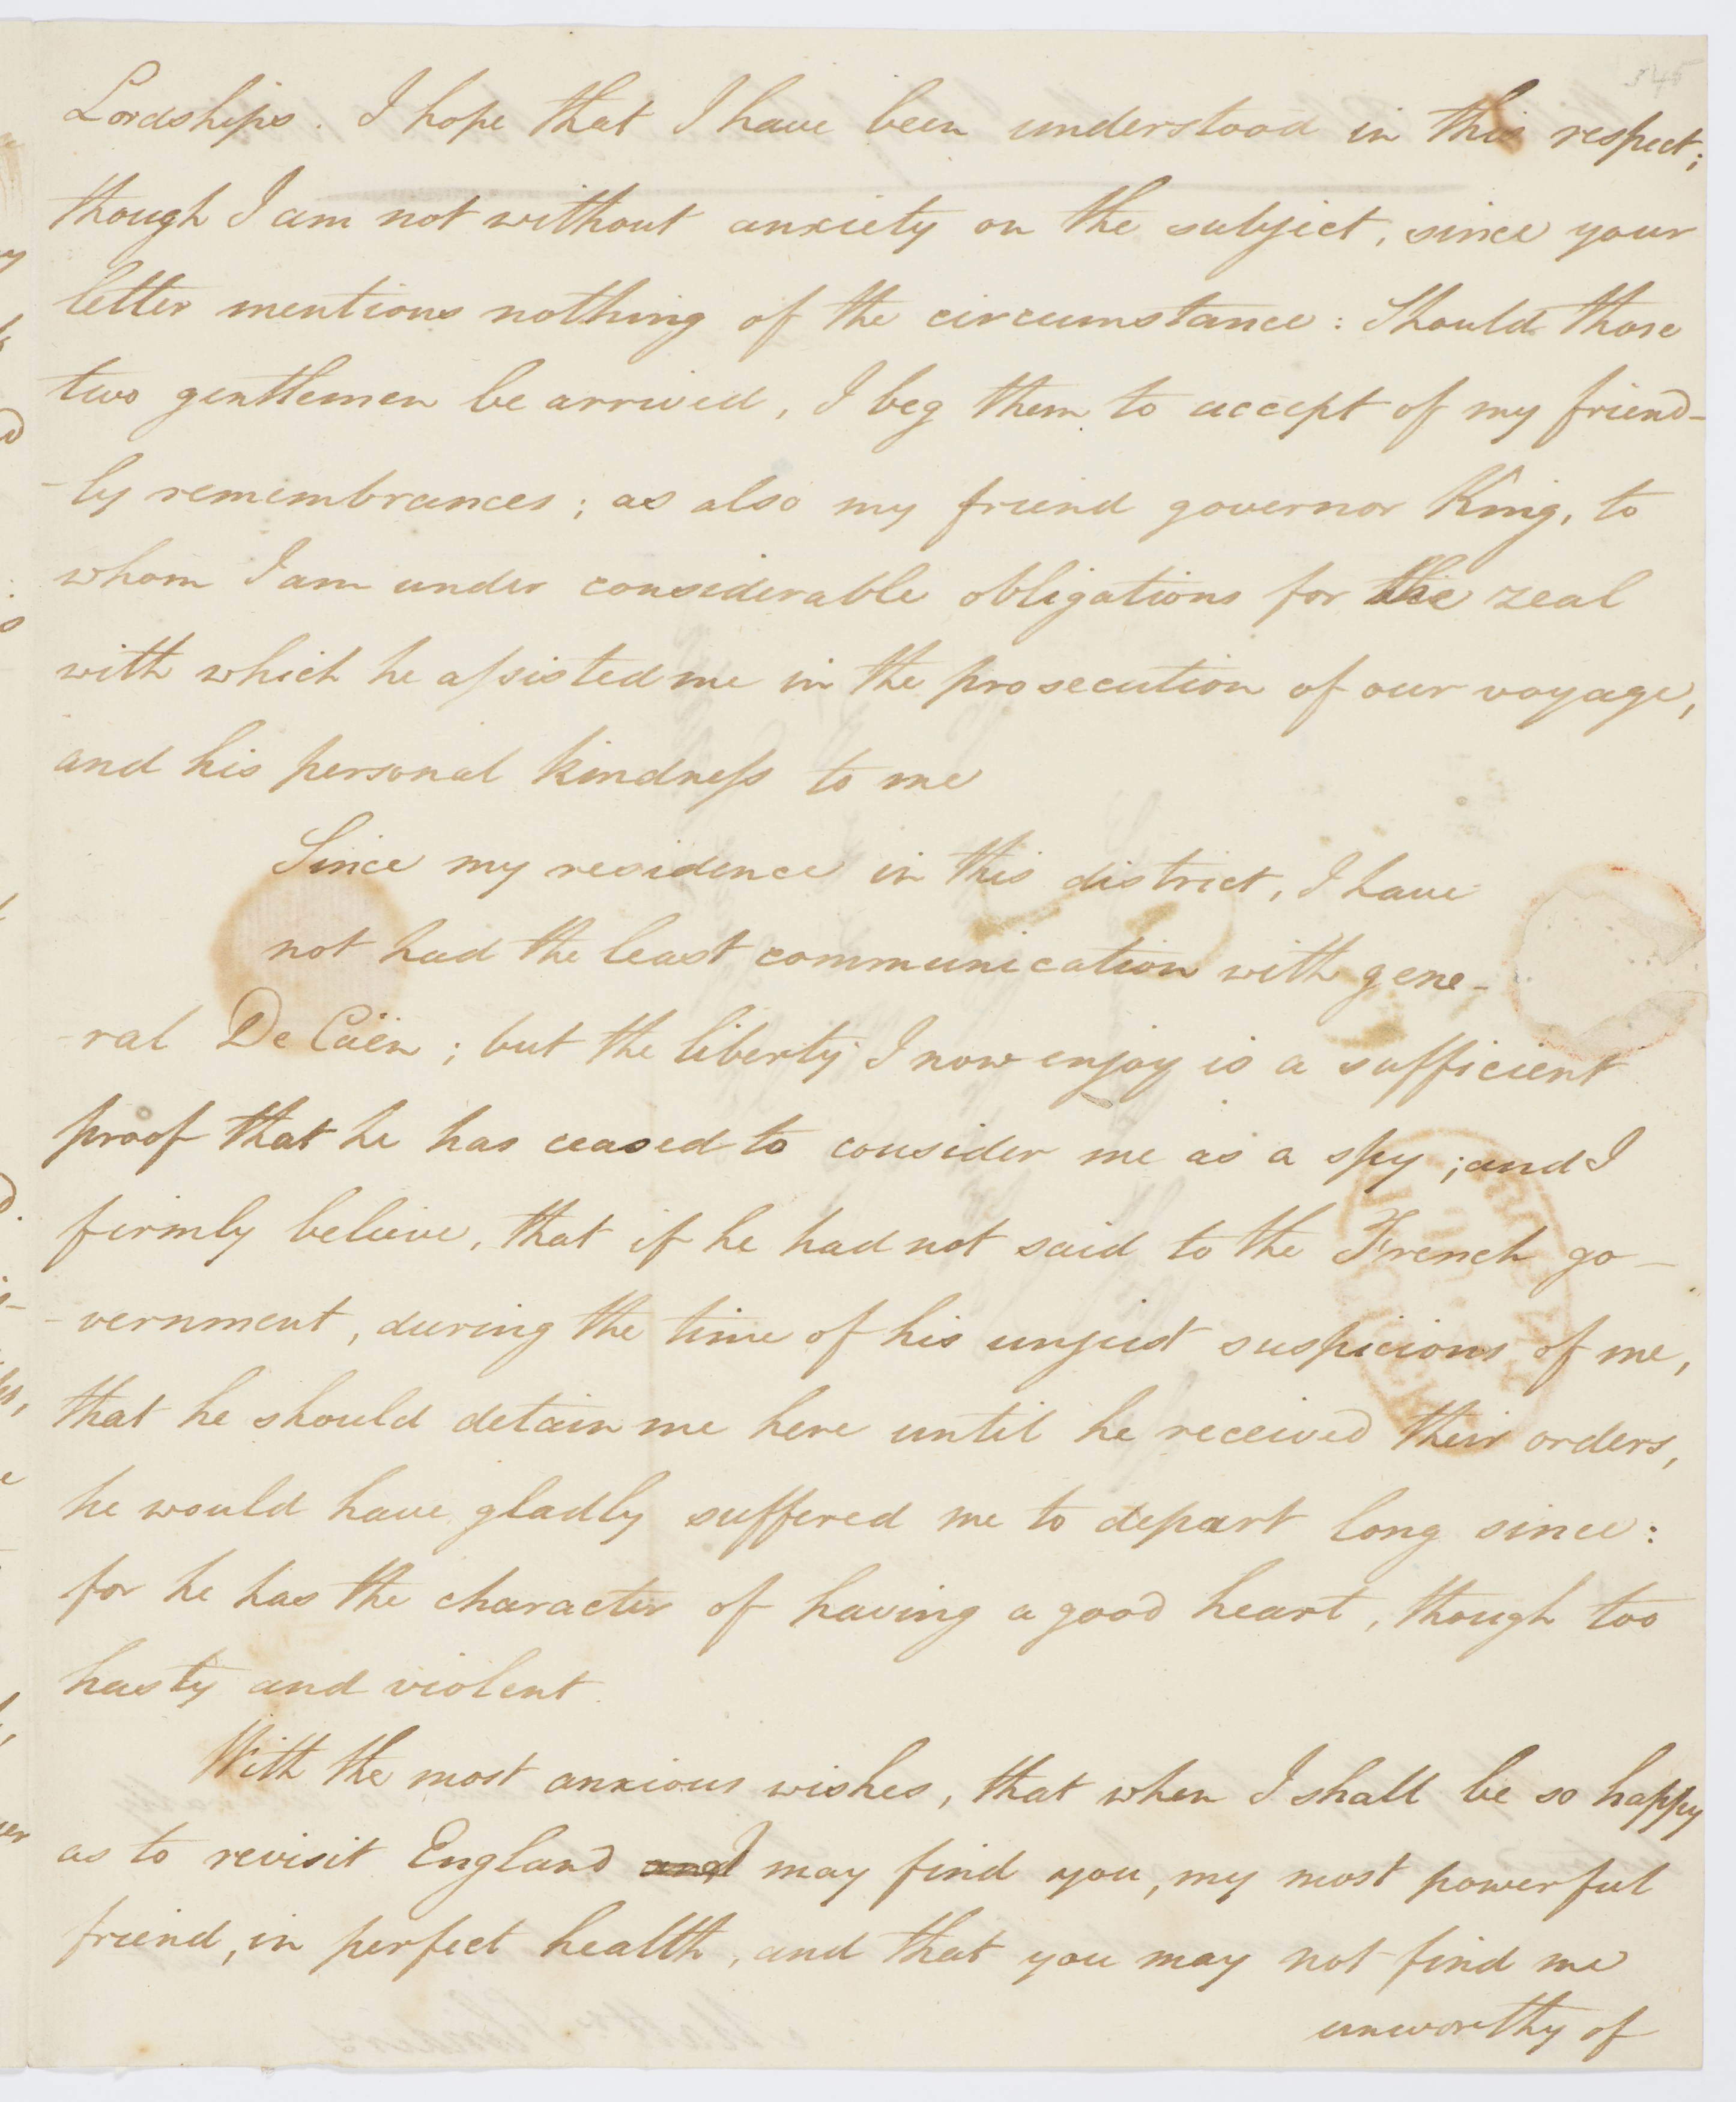 345
Lordships. I hope that I have been understood in this respect;
though I am not without anxiety on the subject, since your
letter mentions nothing of the circumstance: Should those
two gentlemen be arrived, I beg them to accept of my friend-
-ly remembrances; as also my friend governor King, to
whom I am under considerable obligations for the zeal
with which he assisted me in the prosecution of our voyage,
and his personal kindness to me
Since my residence in this district, I have
not had the least communication with gene-
-ral De Caën; but the liberty I now enjoy is a sufficient
proof that he has ceased to consider me as a spy; and I
firmly believe, that if he had not said to the French go-
-vernment, during the time of his unjust suspicions of me,
that he should detain me here until he received their orders,
he would have gladly suffered me to depart long since:
for he has the character of having a good heart, though too
hasty and violent.
With the most anxious wishes, that when I shall be so happy
as to revisit England and I may find you, my most powerful
friend, in perfect health, and that you may not find me
unworthy of